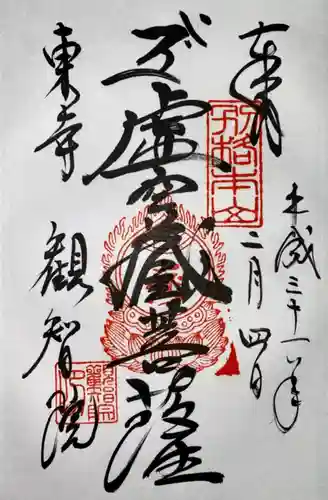 奉拝
平成三十一年
二月四日
別格本山
五大虚空蔵菩薩
東寺
観智院